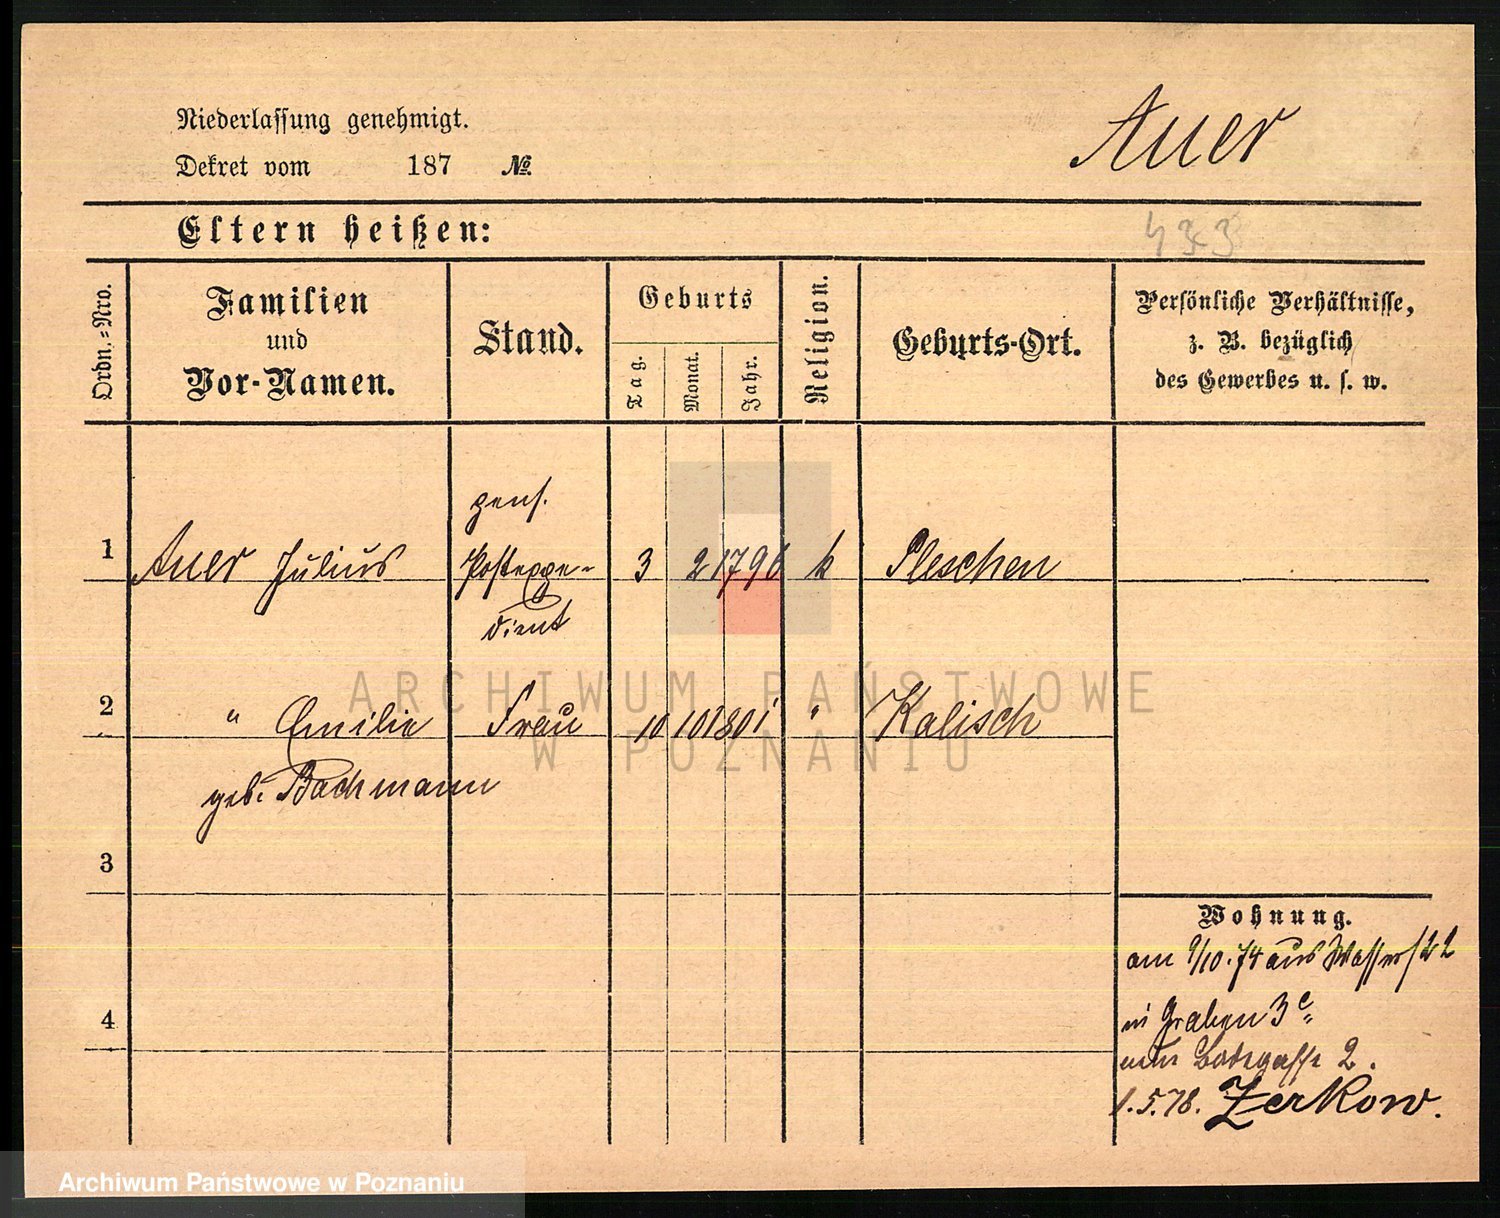 Niederlassung genehmigt.
Auer
Dekret vom 187 №
Eltern heißen:
433
Ordn.-Nro.
Familien
und
Vor-Namen.
Stand.
Geburts
Tag.
Monat.
Jahr.
Religion.
Geburts-Ort.
Persönliche Verhältnisse,
z. B. bezüglich
des Gewerbes u. s. w.
pens.
1 Auer Julius Postexpe- 3 2 1796 k Pleschen
dient
ARCHIWUM PAŃSTWOWE
2 " Emilie Frau 10 10 1801 " Kalisch
W POZNANIU
geb. Bachmann
3
Wohnung.
am 1/10.74 aus Wasserstr 2
4
in Graben 3c
nun Badegasse 2.
1.5.78. Zerkow.
Archiwum Państwowe w Poznaniu